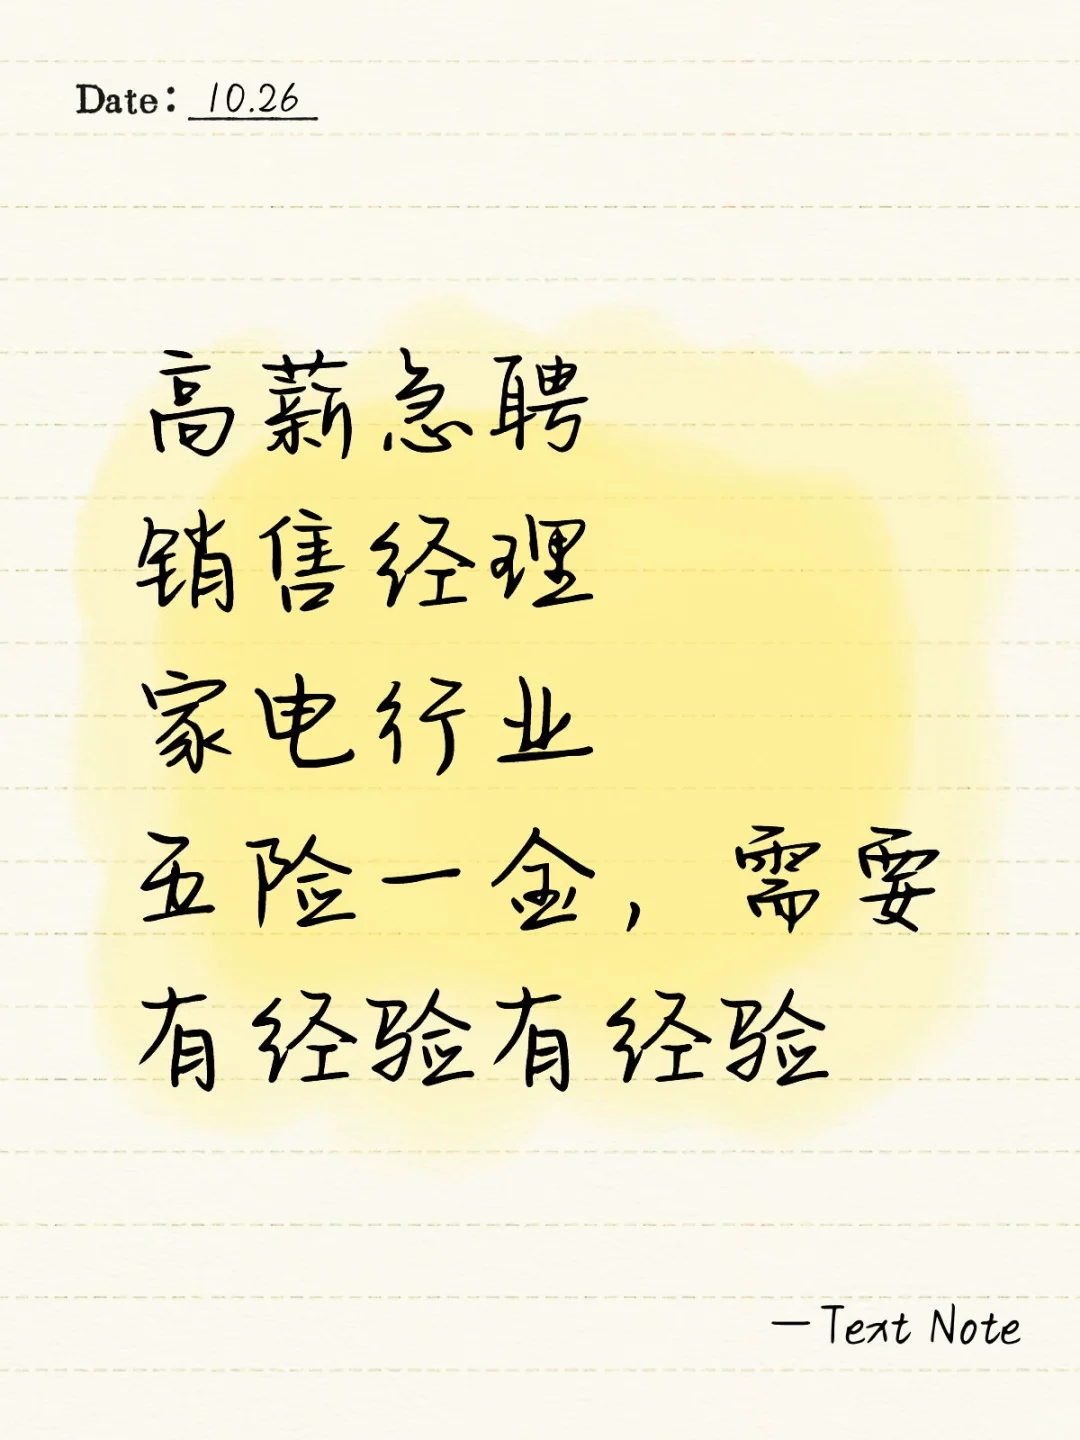 Date: 10.26
高薪急聘
销售经理
家电行业
五险一金，需要
有经验有经验
—Text Note